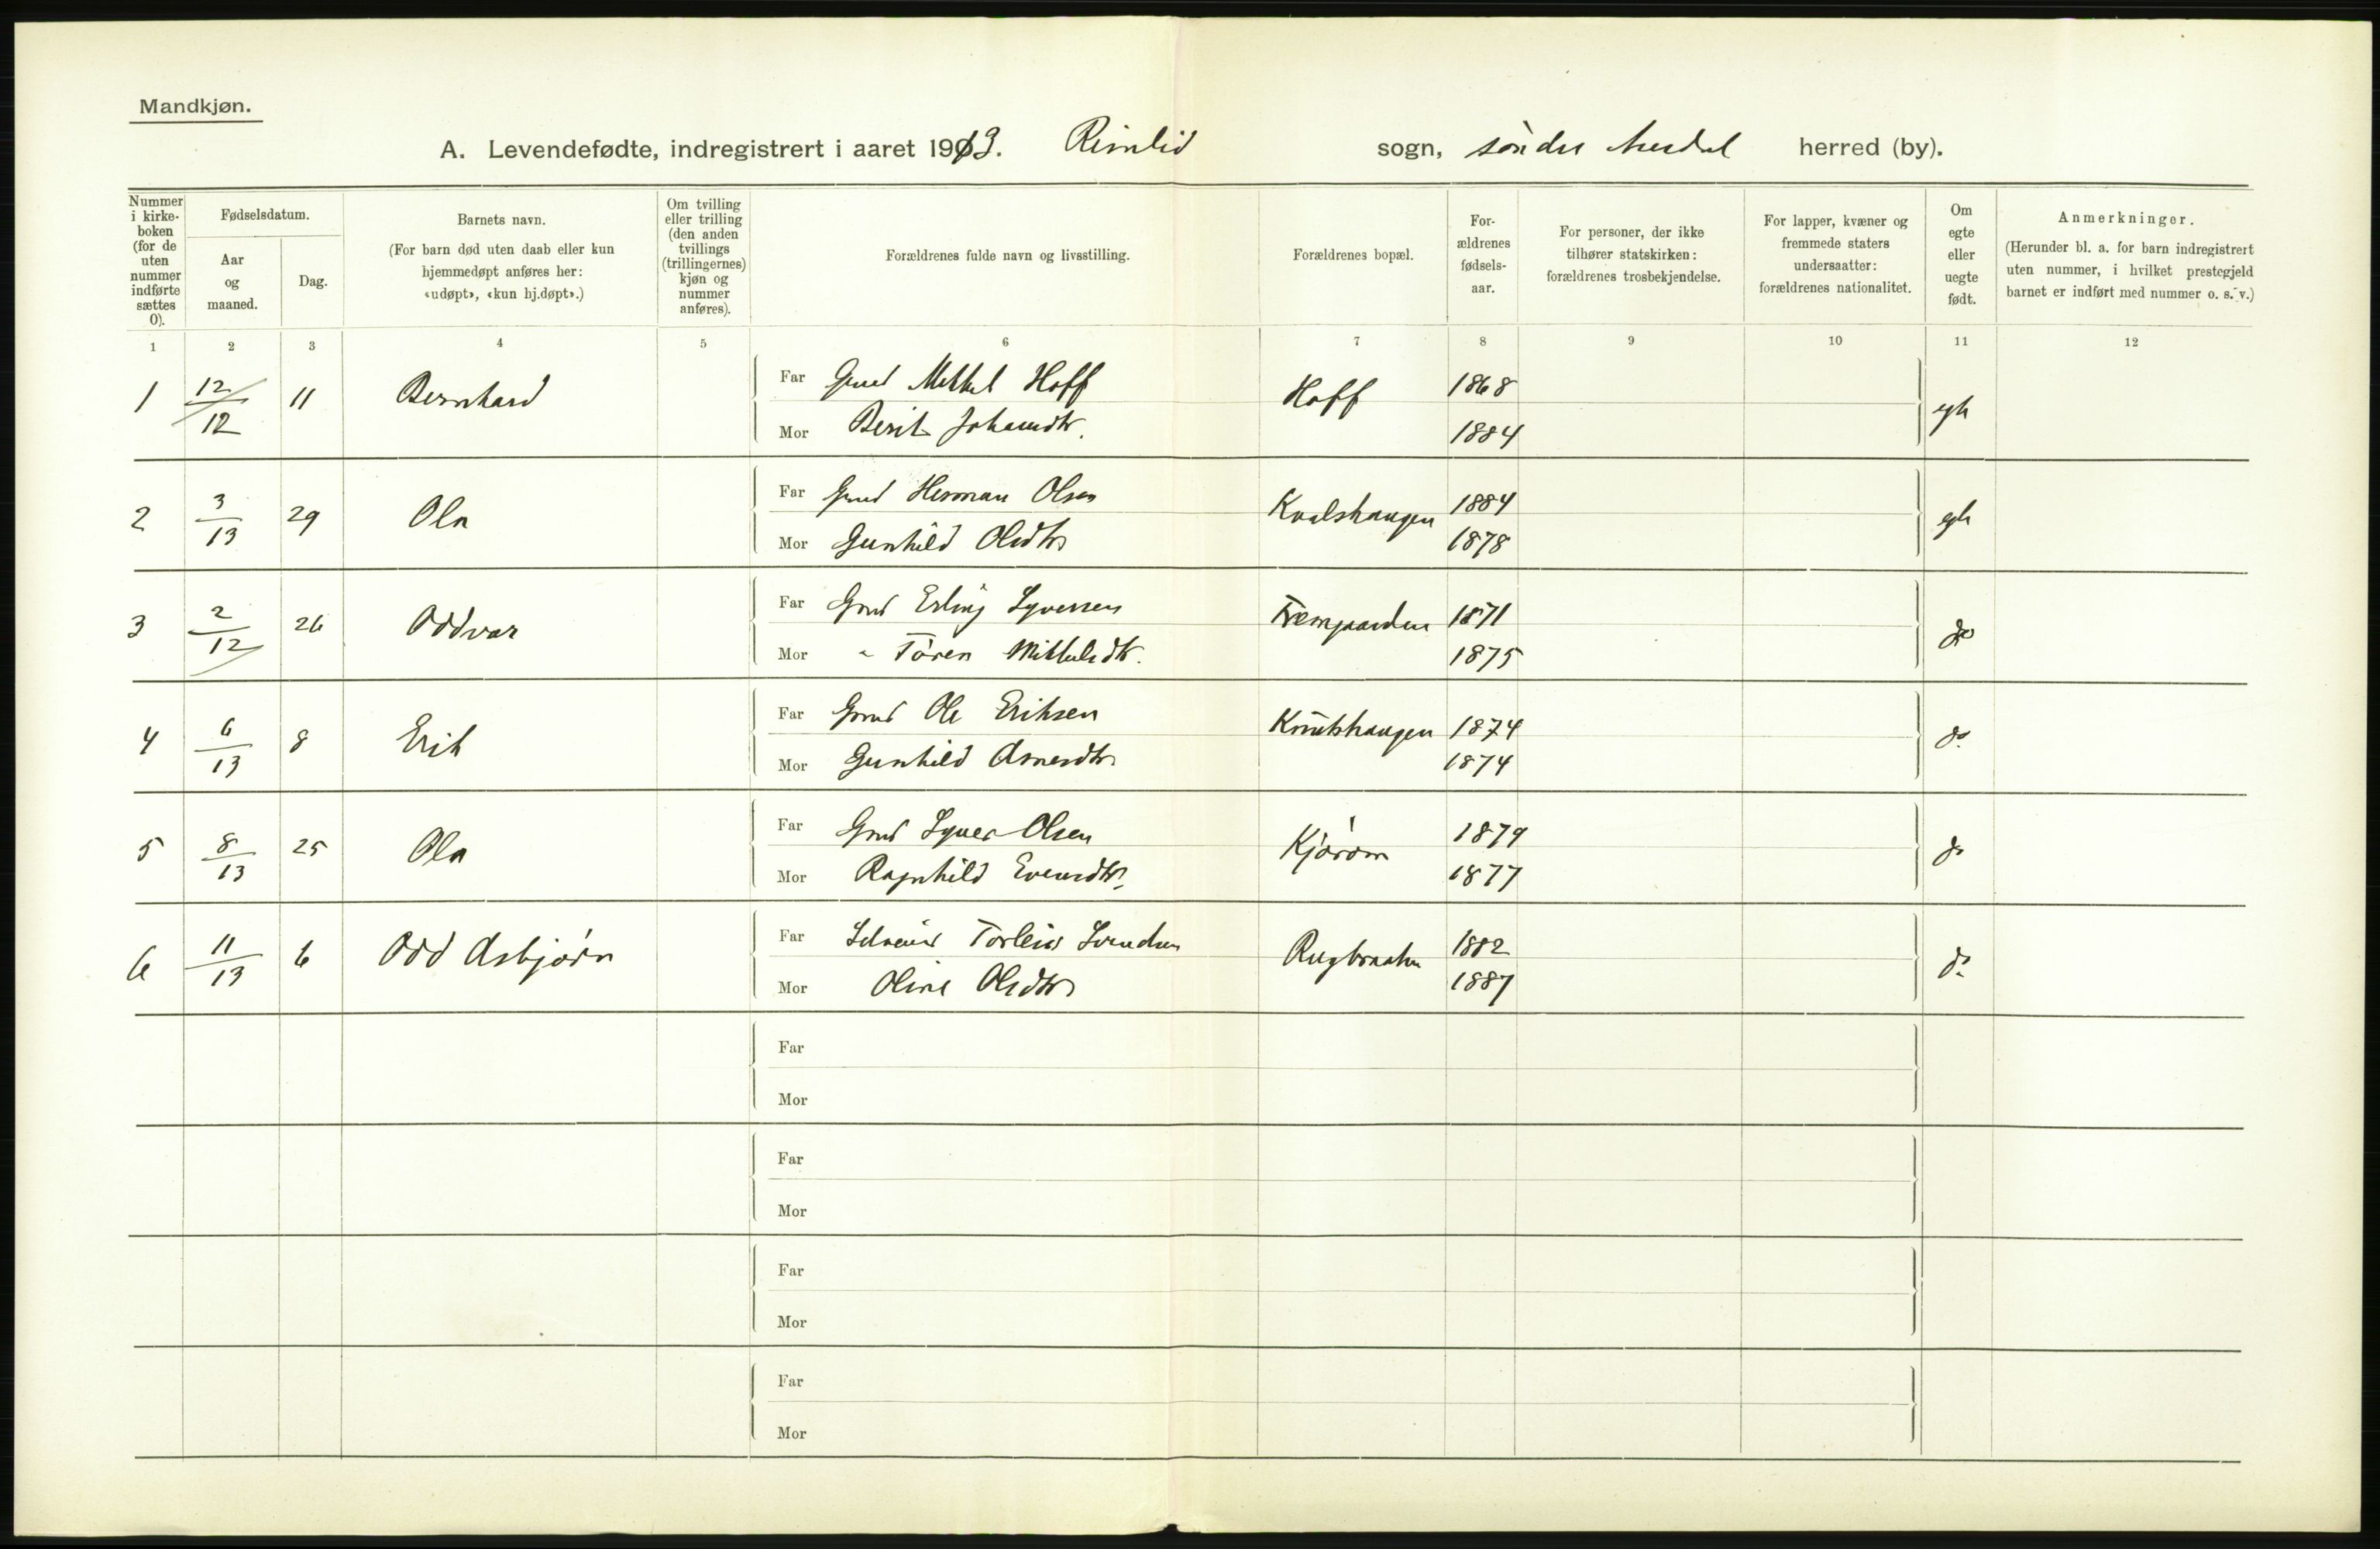 Mandkjøn.
A. Levendefødte, indregistrert i aaret 1913. Rimlid sogn, söndre Aurdal herred (by).
Nummer i kirke- boken (for de uten nummer indførte sættes 0).
Fødselsdatum.
Aar og maaned.
Dag.
Barnets navn.
(For barn død uten daab eller kun
hjemmedøpt anføres her:
«udøpt», «kun hj.døpt».)
Om tvilling
eller trilling
(den anden
tvillings
(trillingernes)
kjøn og
nummer
anføres).
Forældrenes fulde navn og livsstilling.
Forældrenes bopæl.
For-
ældrenes
fødsels-
aar.
For personer, der ikke
tilhører statskirken:
forældrenes trosbekjendelse.
For lapper, kvæner og
fremmede staters
undersaatter:
forældrenes nationalitet.
Om
egte
eller
uegte
født.
Anmerkninger.
(Herunder bl. a. for barn indregistrert
uten nummer, i hvilket prestegjeld
barnet er indført med nummer o. s. v.)
1 2 3 4 5 6 7 8 9 10 11 12
1 12/12 11 Bernhard Far Gmd Mikkel Hoff Hoff 1868
Mor Berit Johansdtr. 1884
2 3/13 29 Ola Far Gmd Herman Olsen Kvalshaugen 1884
Mor Gunhild Olsdtr 1878
3 2/12 26 Oddvar Far Gmd Erling Syversen Fremgaarden 1871 do
Mor Tören Mikkelsdtr. 1875
4 6/13 8 Erik Far Gmd Ole Eriksen Knutshaugen 1874 do
Mor Gunhild Arnesdtr 1874
5 8/13 25 Ola Far Gmd Syver Olsen 1879 do
Mor Ragnhild Evensdtr. 1877
6 11/13 6 Odd Asbjörn Far Torleiv Svendsen Rugbraaten 1882 do
Mor Oline Olsdtr 1887
Far
Mor
Far
Mor
Far
Mor
Far
Mor